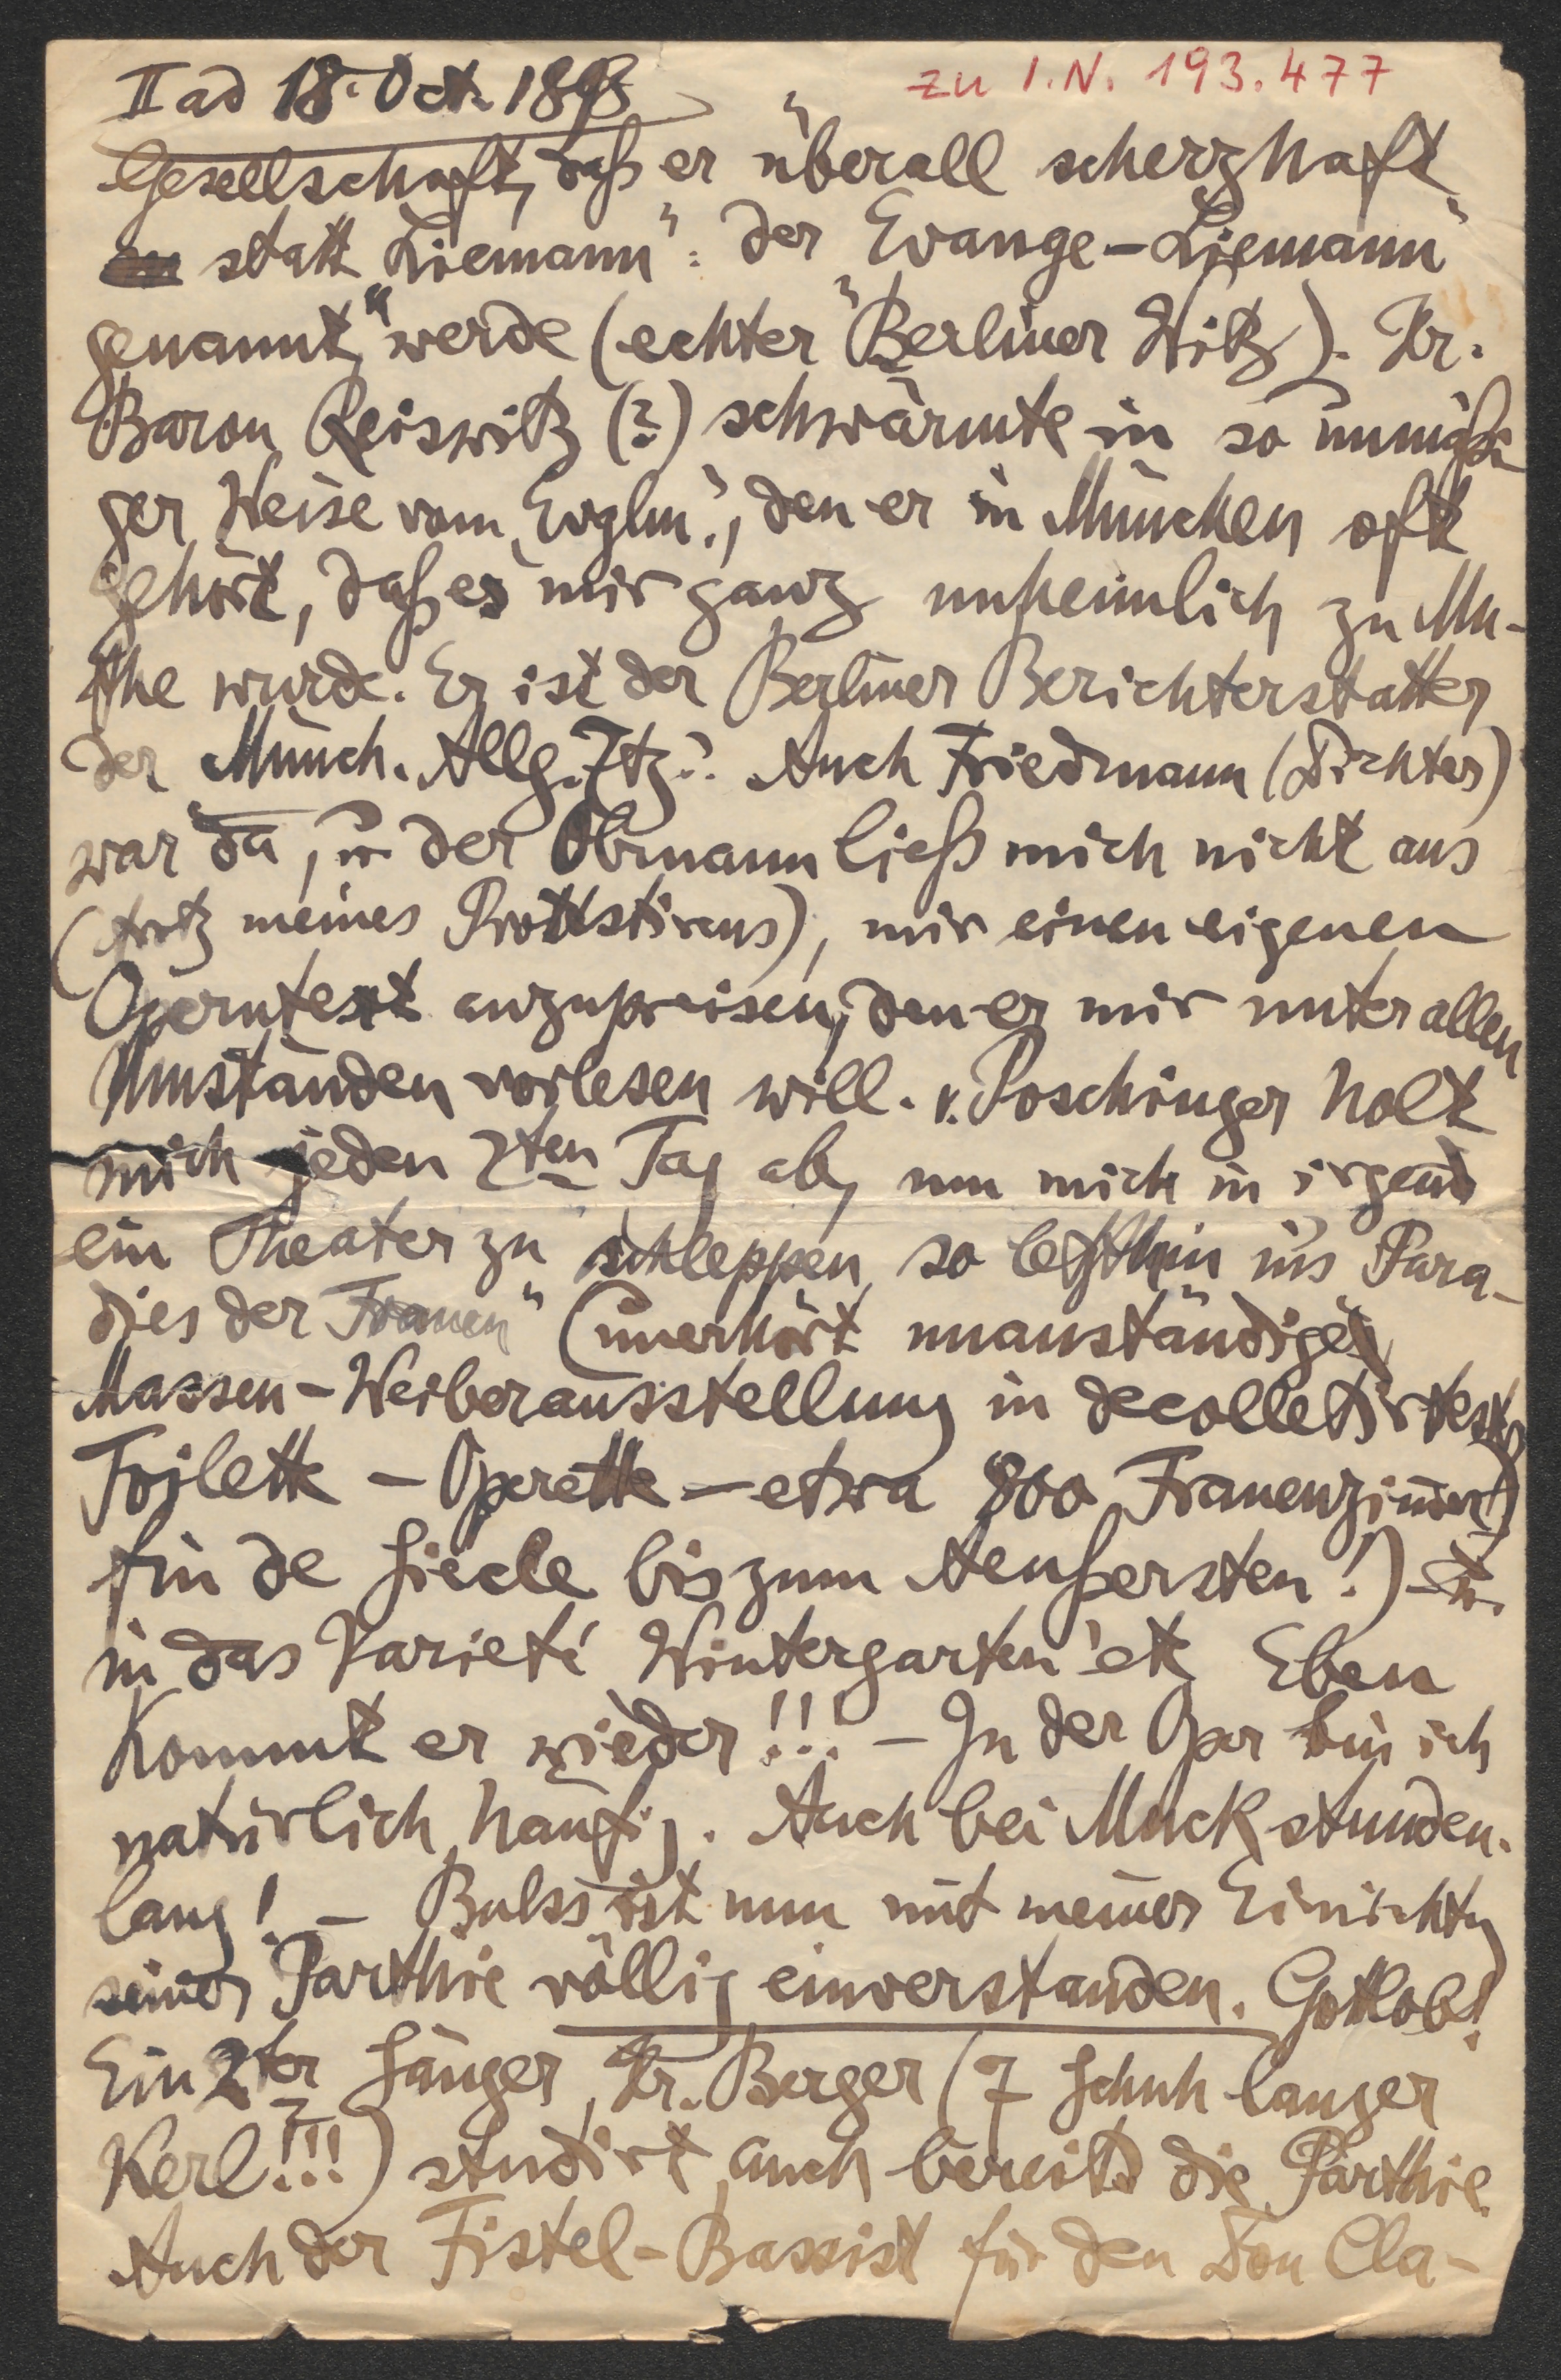 II ad 18. Oct. 1898
zu I.N. 193.477
Gesellschaft, daß er überall scherzhaft
statt "Liemann": "der Evange-Liemann"
genannt" werde (echter "Berliner Witz). Hr.
Baron Reiswitz (?) schwärmte in so
ger Weise vom Evglm., den er in München oft
gehört, daß es mir ganz unheimlich zu Mu-
the wurde. Er ist der Berliner Berichterstatter
der Münch. Allg. Ztg. Auch Friedmann (Dichter)
war da, u. der Obmann ließ mich nicht aus
(trotz meines Protestirens), mir einen eigenen
Operntext anzupreisen, den er mir unter allen
Umständen vorlesen will. v. Poschinger holt
mich jeden 2ten Tag ab, um mich in irgend
ein Theater zu schleppen, so letzthin ins Para-
dies der Frauen" (unerhört unanständige
Massen-Weiberausstellung in decolletirtester
Toilette - Operette - etwa 800 Frauenzimmer)
fin de siecle bis zum Aeußersten!) - u.
in das Varieté Wintergarten etc Eben
kommt er wieder!!! - In der Oper bin ich
natürlich häufig. Auch bei Muck stunden-
lang! - Bulss ist nun mit meiner Einrichtg
seiner Parthie völlig einverstanden. Gottlob!
Ein 2ter Sänger, Hr. Berger (7 Schuh langer
Kerl!!!) studirt auch bereits die Parthie.
Auch der Fistel-Bassist für den Don Cla-